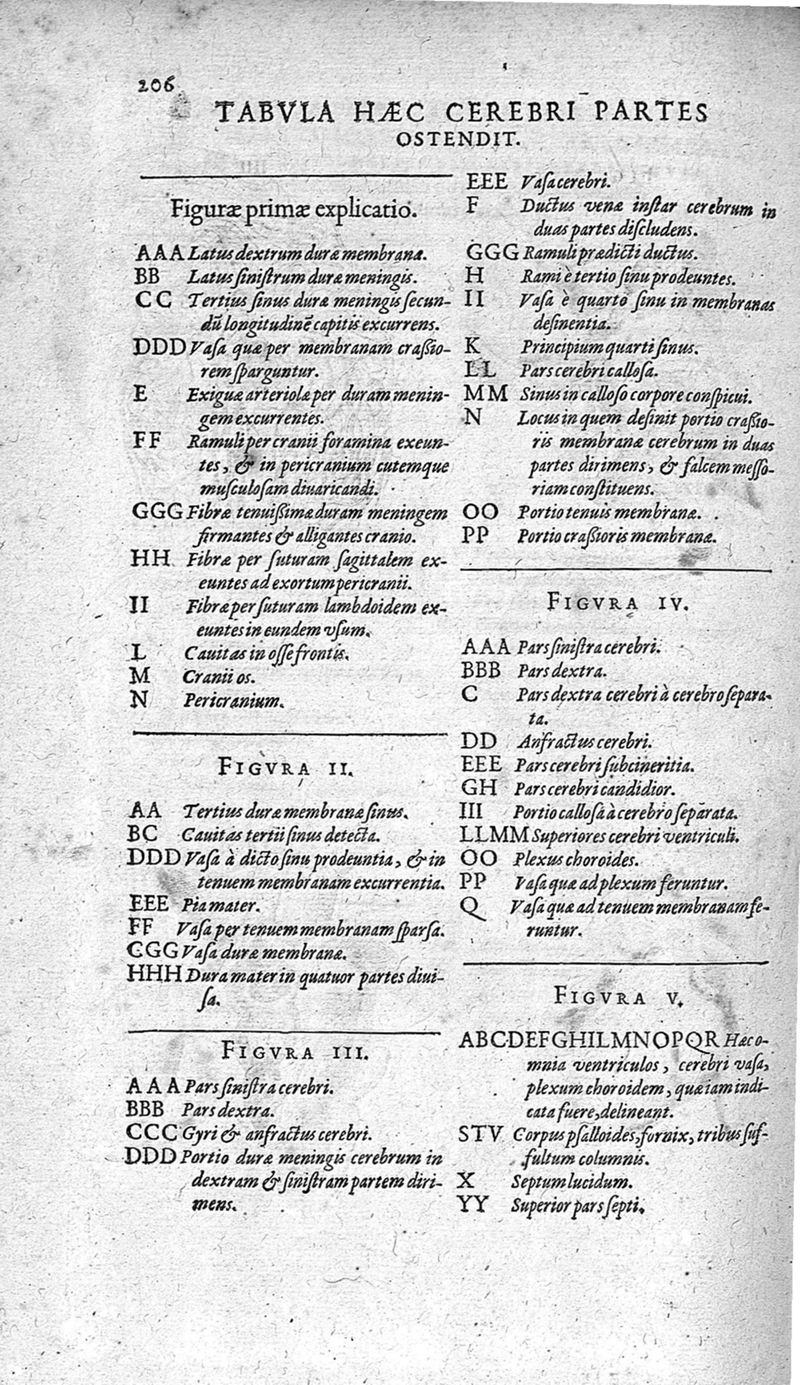 206
TABVLA HÆC CEREBRI PARTES
OSTENDIT.
Figuræ primæ explicatio.
AAA Latus dextrum duræ membranæ.
BB Latus ſiniſtrum duræ meningis.
CC Tertius ſinus duræ meningis ſecun-
dũ longitudinẽ capitis excurrens.
DDD Vaſa quæ per membranam craßio-
rem ſparguntur.
E Exiguæ arteriolæ per duram menin-
gem excurrentes.
FF Ramuli per cranii foramina exeun-
tes, & in pericranium cutemque
muſculoſam diuaricandi.
GGG Fibræ tenuißimæ duram meningem
firmantes & alligantes cranio.
HH Fibræ per ſuturam ſagittalem ex-
euntes ad exortum pericranii.
II Fibræ per ſuturam lambdoidem ex-
euntes in eundem vſum.
L Cauitas in oſſe frontis.
M Cranii os.
N Pericranium.
FIGVRA II.
AA Tertius duræ membranæ ſinus.
BC Cauitas tertii ſinus detecta.
DDD Vaſa à dicto ſinu prodeuntia, & in
tenuem membranam excurrentia.
EEE Pia mater.
FF Vaſa per tenuem membranam ſparſa.
CGG Vaſa duræ membranæ.
HHH Dura mater in quatuor partes diui-
ſa.
FIGVRA III.
AAA Pars ſiniſtra cerebri.
BBB Pars dextra.
CCC Gyri & anfractus cerebri.
DDD Portio duræ meningis cerebrum in
dextram & ſiniſtram partem diri-
mens.
EEE Vaſa cerebri.
F Ductus venæ inſtar cerebrum in
duas partes diſcludens.
GGG Ramuli prædicti ductus.
H Rami è tertio ſinu prodeuntes.
II Vaſa è quarto ſinu in membranas
deſinentia.
K Principium quarti ſinus.
LL Pars cerebri calloſa.
MM Sinus in calloſo corpore conſpicui.
N Locus in quem deſinit portio craßio-
ris membranæ cerebrum in duas
partes dirimens, & falcem meſſo-
riam conſtituens.
OO Portio tenuis membranæ.
PP Portio craßioris membranæ.
FIGVRA IV.
AAA Pars ſiniſtra cerebri.
BBB Pars dextra.
C Pars dextra cerebri à cerebro ſepara-
ta.
DD Anfractus cerebri.
EEE Pars cerebri ſubcineritia.
GH Pars cerebri candidior.
III Portio calloſa à cerebro ſeparata.
LLMM Superiores cerebri ventriculi.
OO Plexus choroides.
PP Vaſa quæ ad plexum feruntur.
Q Vaſa quæ ad tenuem membranam fe-
runtur.
FIGVRA V.
ABCDEFGHILMNOPQR Hæc o-
mnia ventriculos, cerebri vaſa,
plexum choroidem, quæ iam indi-
cata fuere, delineant.
STV Corpus pſalloides, fornix, tribus ſuf-
fultum columnis.
X Septum lucidum.
YY Superior pars ſepti.